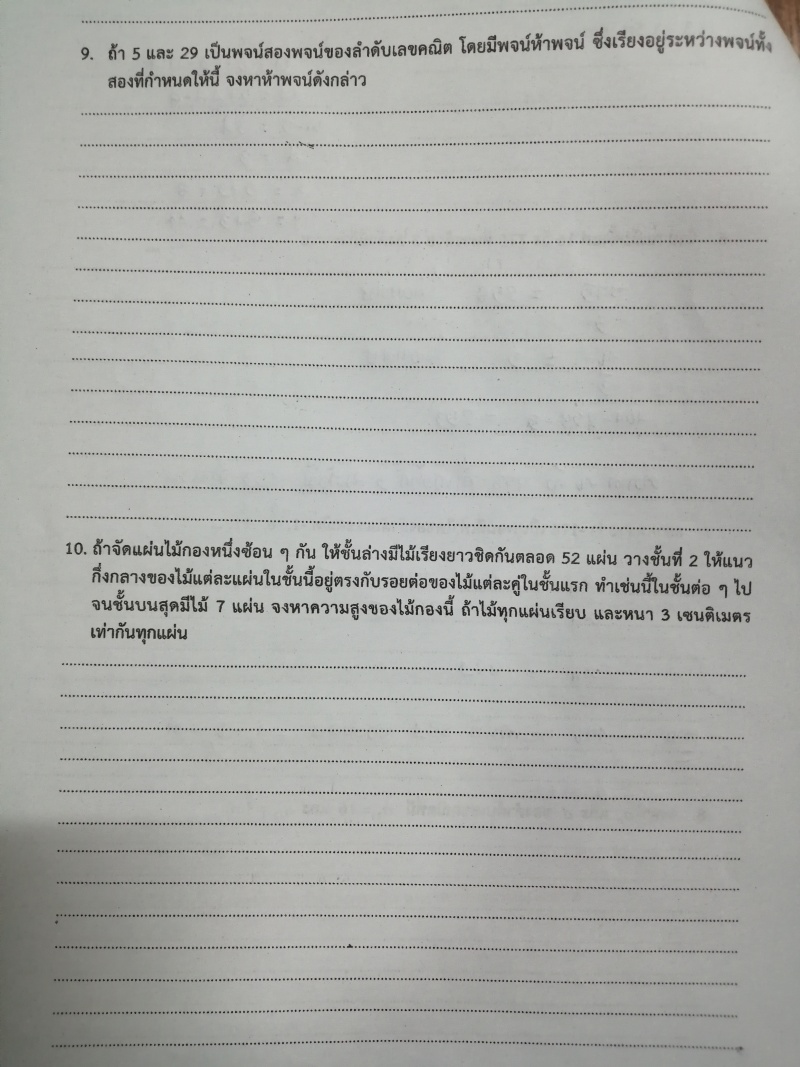 9. ถ้า 5 และ 29 เป็นพจน์สองพจน์ของลำดับเลขคณิต โดยมีพจน์ห้าพจน์ ซึ่งเรียงอยู่ระหว่างพจน์ทั้ง
สองที่กำหนดให้นี้ จงหาห้าพจน์ดังกล่าว
10. ถ้าจัดแผ่นไม้กองหนึ่งซ้อน ๆ กัน ให้ชั้นล่างมีไม้เรียงยาวชิดกันตลอด 52 แผ่น วางชั้นที่ 2 ให้แนว
กึ่งกลางของไม้แต่ละแผ่นในชั้นนี้อยู่ตรงกับรอยต่อของไม้แต่ละคู่ในชั้นแรก ทำเช่นนี้ในชั้นต่อ ๆ ไป
จนชั้นบนสุดมีไม้ 7 แผ่น จงหาความสูงของไม้กองนี้ ถ้าไม้ทุกแผ่นเรียบ และหนา 3 เซนติเมตร
เท่ากันทุกแผ่น